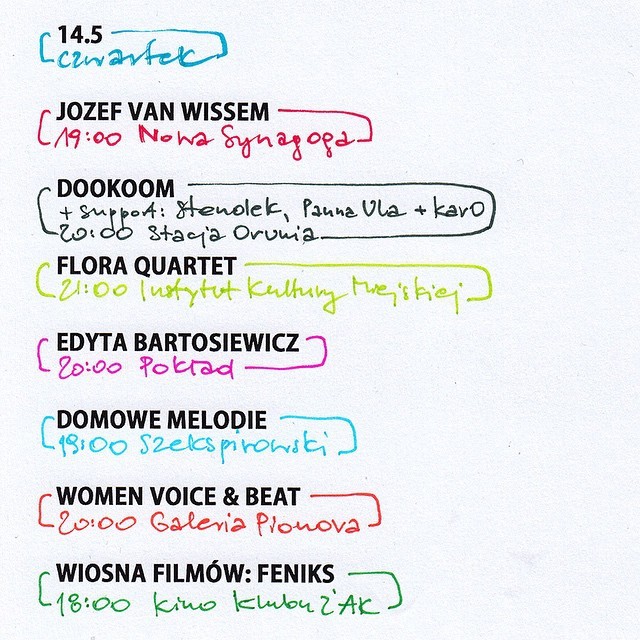 14.5
czwartek
JOZEF VAN WISSEM
19:00 Nowa Synagoga
DOOKOOM
+ support: Stendek, Panna Ula + karO
20:00 Stacja Orunia
FLORA QUARTET
21:00 Instytut Kultury Miejskiej
EDYTA BARTOSIEWICZ
20:00 Pokład
DOMOWE MELODIE
19:00 Szekspirowski
WOMEN VOICE & BEAT
20:00 Galeria Pionova
WIOSNA FILMÓW: FENIKS
18:00 kino klubu ŻAK